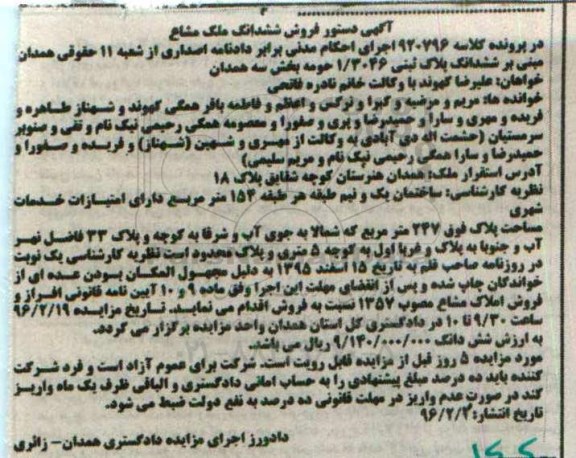 آگهی دستور فروش ششدانگ ملک مشاع
در پرونده کلاسه ۹۲۰۷۹۶ اجرای احکام مدنی برابر دادنامه اصداری از شعبه ۱۱ حقوقی همدان
مبنی بر ششدانگ پلاک ثبتی ۱/۳۰۴۶ حومه بخش سه همدان
خواهان: علیرضا کهوند با وکالت خانم نادره فاتحی
خوانده ها: مریم و مرضیه و کبرا و نرگس و اعظم و فاطمه باقر همگی کهوند و شهناز طاهره و
فریده و مهری و سارا و حمیدرضا و پری و صفورا و معصومه همگی رحیمی نیک نام و تقی و صنوبر
سرمستیان (حشمت اله دی آبادی به وکالت از مهری و شهین (شهناز) و فریده و صفورا و
حمیدرضا و سارا همگی رحیمی نیک نام و مریم سلیمی)
آدرس استقرار ملک: همدان هنرستان کوچه شقایق پلاک ۱۸
نظریه کارشناسی: ساختمان یک و نیم طبقه هر طبقه ۱۵۴ متر مربع دارای امتیازات خدمات
شهری
مساحت پلاک فوق ۲۴۷ متر مربع که شمالا به جوی آب و شرقا به کوچه و پلاک ۳۳ فاضل نهر
آب و جنوبا به پلاک و غربا اول به کوچه ۵ متری و پلاک محدود است نظریه کارشناسی یک نوبت
در روزنامه صاحب قلم به تاریخ ۱۵ اسفند ۱۳۹۵ به دلیل مجهول المکان بودن عده ای از
خواندگان چاپ شده و پس از انقضای مهلت این اجرا وفق ماده ۹ و ۱۰ آیین نامه قانونی افراز و
فروش املاک مشاع مصوب ۱۳۵۷ نسبت به فروش اقدام می نماید. تاریخ مزایده ۹۶/۲/۱۹
ساعت ۹/۳۰ تا ۱۰ در دادگستری کل استان همدان واحد مزایده برگزار می گردد.
به ارزش شش دانگ ۹/۱۴۰/۰۰۰/۰۰۰ ریال می باشد.
مورد مزایده ۵ روز قبل از مزایده قابل رویت است. شرکت برای عموم آزاد است و فرد شرکت
کننده باید ده درصد مبلغ پیشنهادی را به حساب امانی دادگستری و الباقی ظرف یک ماه واریز
کند در صورت عدم واریز در مهلت قانونی ده درصد به نفع دولت ضبط می شود.
تاریخ انتشار: ۹۶/۲/۲
دادورز اجرای مزایده دادگستری همدان- زائری